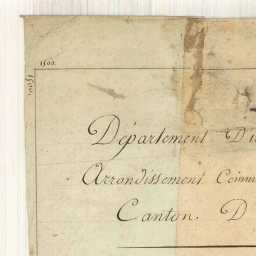 1500.
1500.
Département D
Arrondissement Comm
Canton. D